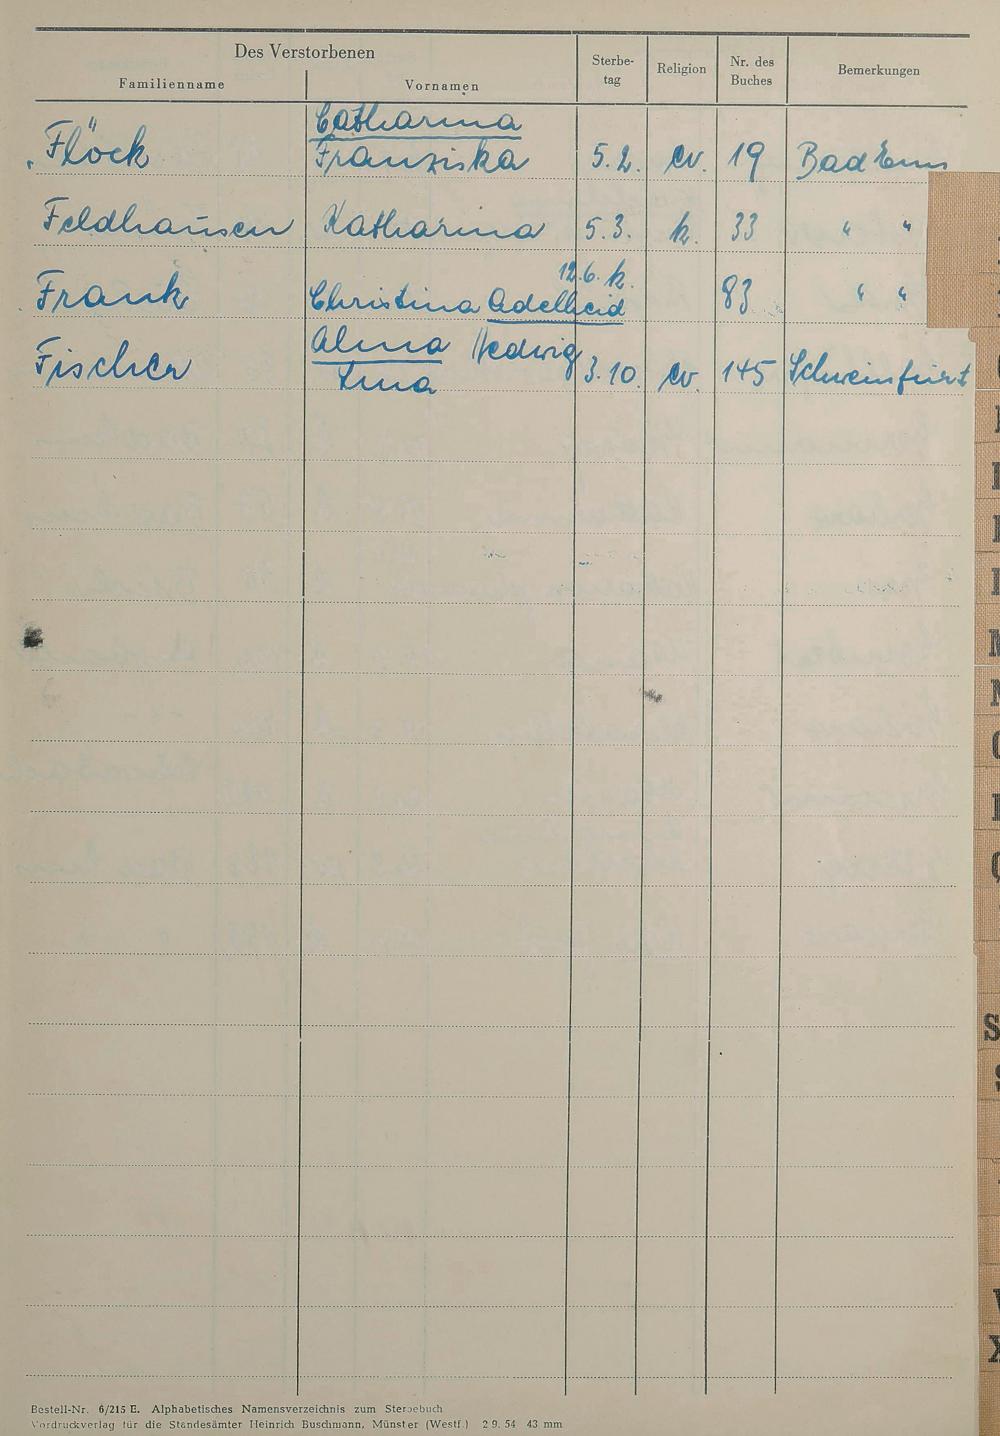 Des Verstorbenen
Familienname Vornamen Sterbe-tag Religion Nr. des Buches Bemerkungen
Catharina
Flöck Franziska 5.2. ev. 19 Bad Ems
Feldhausen Katharina 5.3. k. 33 " "
12.6. k.
Frank Christina Adelheid 83 " "
Alma Hedwig
Fischer Lina 3.10. ev. 145 Schweinfurt
M
N
S
X
Bestell-Nr. 6/215 E. Alphabetisches Namensverzeichnis zum Sterbebuch
Vordruckverlag für die Standesämter Heinrich Buschmann, Münster (Westf.) 2 9. 54 43 mm